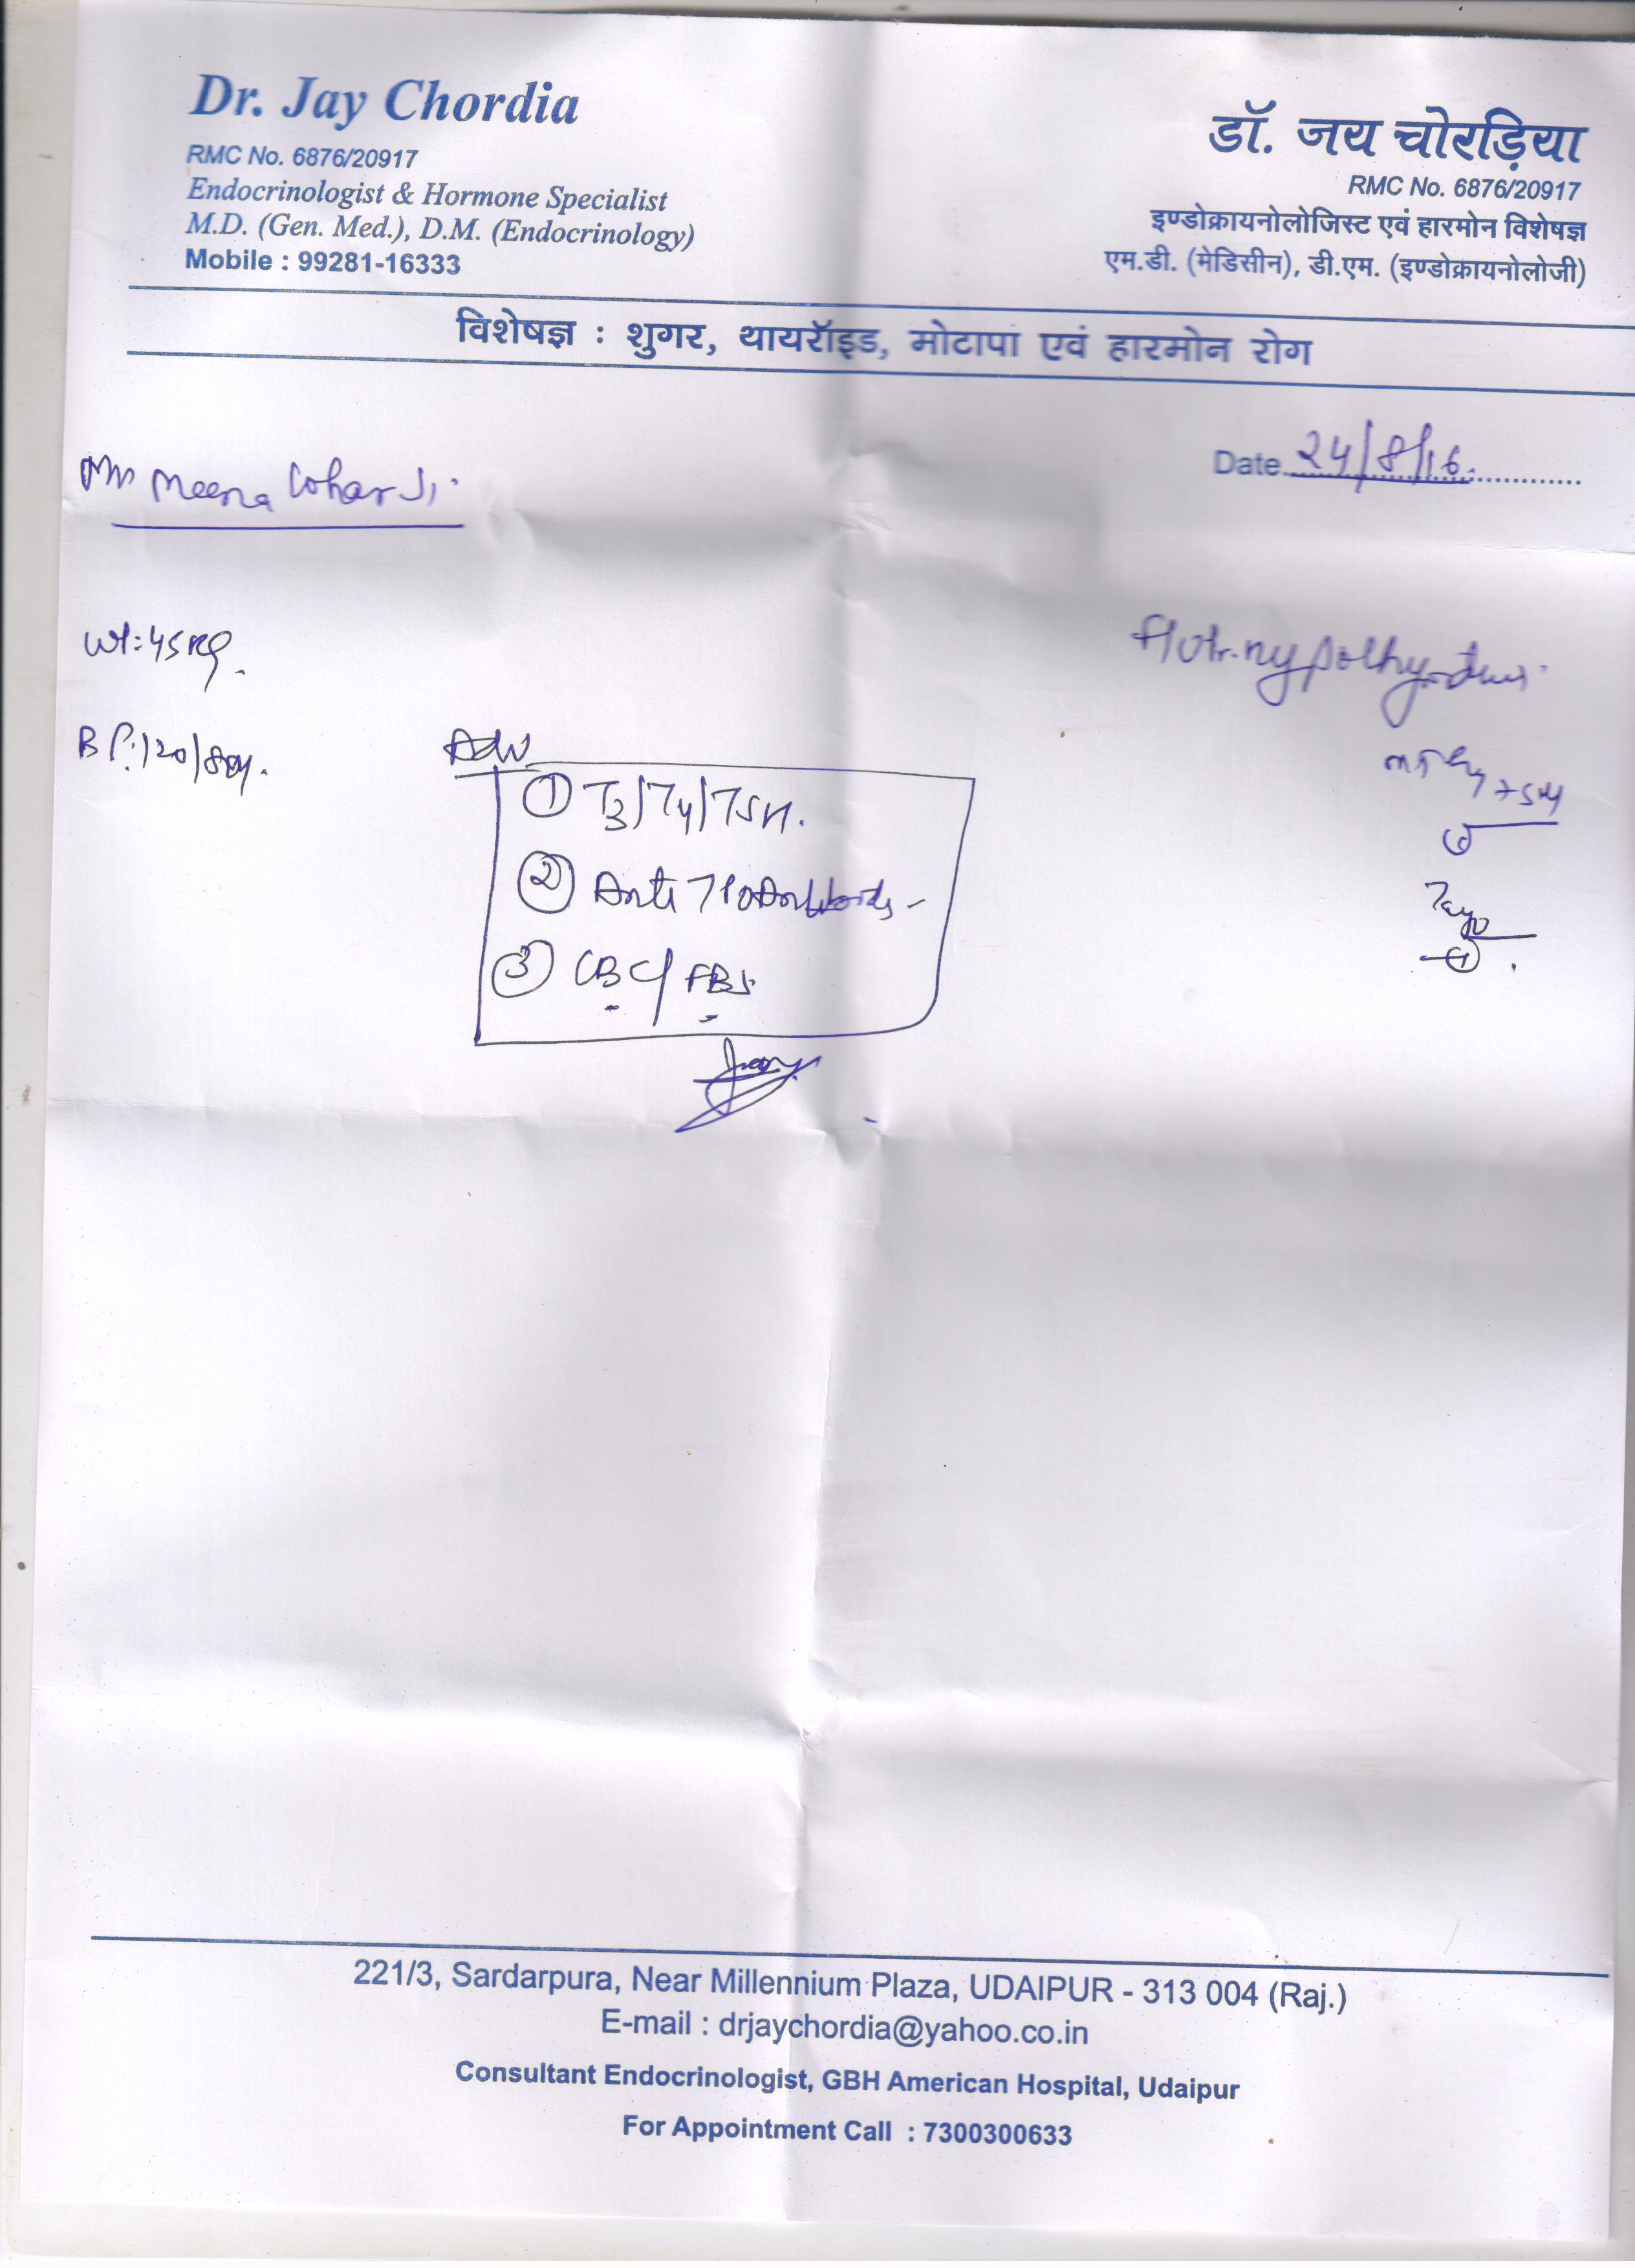 Dr. Jay Chordia
RMC No. 6876/20917
Endocrinologist & Hormone Specialist
M.D. (Gen. Med.), D.M. (Endocrinology)
Mobile : 99281-16333
डॉ. जय चोरड़िया
RMC No. 6876/20917
इण्डोक्रायनोलोजिस्ट एवं हारमोन विशेषज्ञ
एम.डी. (मेडिसीन), डी.एम. (इण्डोक्रायनोलोजी)
विशेषज्ञ : शुगर, थायरॉइड, मोटापा एवं हारमोन रोग
Date 24/8/16.
Meena
Wt: 45 Kg.
BP: 120/80
Adv
① T3/T4/TSH.
② Anti TPO Antibodies
③ CBC/FBS
221/3, Sardarpura, Near Millennium Plaza, UDAIPUR - 313 004 (Raj.)
E-mail : drjaychordia@yahoo.co.in
Consultant Endocrinologist, GBH American Hospital, Udaipur
For Appointment Call : 7300300633